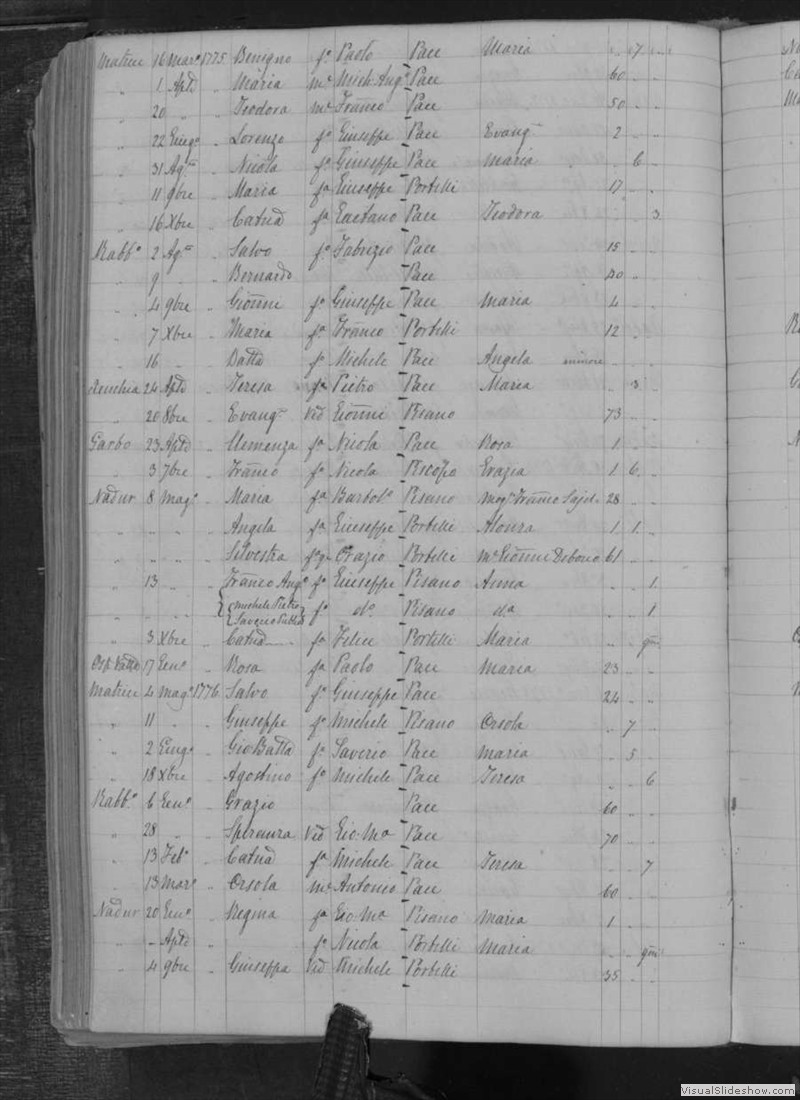 Matrice 16 Mar° 1775 Benigno f° Paolo Pace Maria .. 7 ..
" 1 Aple .. Maria me Mich Ang° Pace 60 .. ..
" 20 " .. Teodora me Franco Pace 50 .. ..
" 22 Giug° .. Lorenzo f° Giuseppe Pace Evang. 2 .. ..
" 31 Ag° .. Nicola f° Giuseppe Pace Maria .. 6 ..
" 11 9bre .. Maria fa Giuseppe Portelli 17 .. ..
" 16 Xbre .. Catnª fa Gaetano Pace Teodora .. .. 3
Rabb° 2 Ag° .. Salvo f° Fabrizio Pace 15 .. ..
" 9 " .. Bernardo Pace 40 .. ..
" 4 9bre .. Gionni f° Giuseppe Pace Maria 4 .. ..
" 7 Xbre .. Maria fa Franco Portelli 12 .. ..
" 16 .. Batta f° Michele Pace Angela minore
24 Aple .. Teresa fa Pietro Pace Maria .. 3 ..
" 20 8bre .. Evang. Vid Gionni Pisano 73 .. ..
Garbo 23 Aple .. Clemenza fa Nicola Pace Rosa 1 .. ..
" 3 7bre .. Franco f° Nicola Piscopo Grazia 1 6 ..
Nadur 8 Mag° .. Maria fa Bartol° Pisano Mog. Franco 28 .. ..
" " " .. Angela fa Giuseppe Portelli Alonza 1 1 ..
" " " .. Silvestra Orazio Portelli me Gionni Debono 61 .. ..
" 13 " .. Franco Ang° f° Giuseppe Pisano Anna .. .. 1
" " " .. Michele Pietro f° d° Pisano da .. .. 1
Saverio
" 3 Xbre .. Catnª fa Felice Portelli Maria .. .. gni
17 Gen° .. Rosa fa Paolo Pace Maria 23 .. ..
Matrice 4 Mag° 1776 Salvo f° Giuseppe Pace 24 .. ..
" 11 " .. Giuseppe f° Michele Pisano Orsola .. 7 ..
" 2 Giug° .. Gio Batta f° Saverio Pace Maria .. 5 ..
" 18 Xbre .. Agostino f° Michele Pace Teresa .. .. 6
Rabb° 6 Gen° .. Grazio Pace 60 .. ..
" 28 " .. Speranza Vid Gio Ma Pace 70 .. ..
" 13 Feb° .. Catnª fa Michele Pace Teresa .. .. 7
" 13 Mar° .. Orsola me Antonio Pace 60 .. ..
Nadur 20 Gen° .. Regina fa Gio Ma Pisano Maria 1 .. ..
" – Aple .. f° Nicola Portelli Maria .. .. gni
" 4 9bre .. Giuseppa Vid Michele Portelli 35 .. ..
VisualSlideshow.com